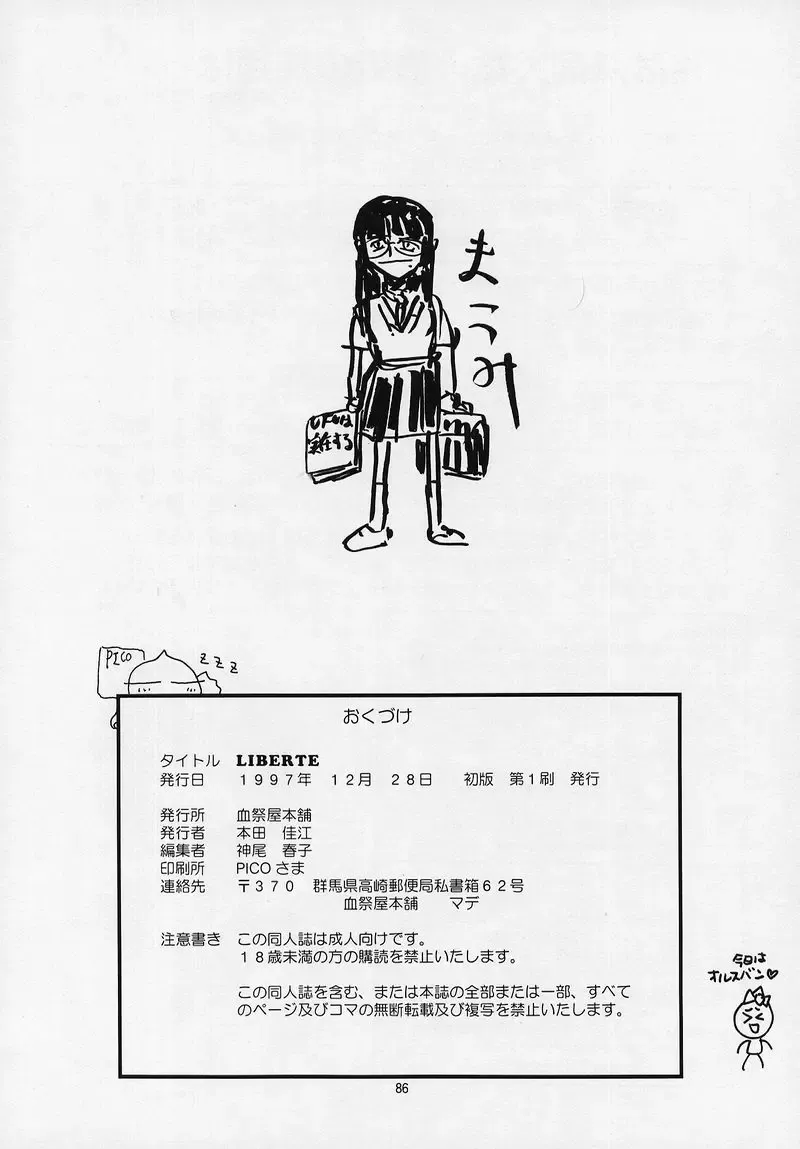 まこみ
UFOは
実在する
PICO
zzz
おくづけ
タイトル LIBERTE
発行日 1997年 12月 28日 初版 第1刷 発行
発行所 血祭屋本舗
発行者 本田 佳江
編集者 神尾 春子
印刷所 PICOさま
連絡先 〒370 群馬県高崎郵便局私書箱62号
血祭屋本舗 マデ
注意書き この同人誌は成人向けです。
18歳未満の方の購読を禁止いたします。
この同人誌を含む、または本誌の全部または一部、すべて
のページ及びコマの無断転載及び複写を禁止いたします。
今日は
オルスバン♡
86